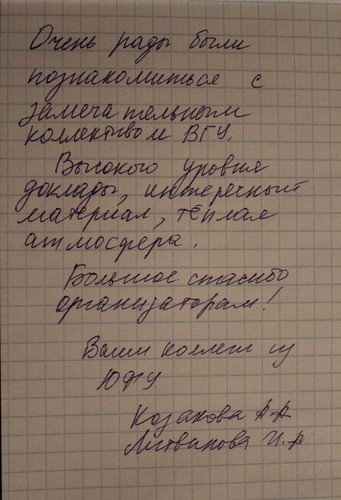 Очень рады были
познакомиться с
замечательным
коллективом ВГУ.
Высокого уровня
доклады, интересный
материал, тёплая
атмосфера.
Большое спасибо
организаторам!
Ваши коллеги из
ЮФУ
Казакова А А
Литвинова И.А